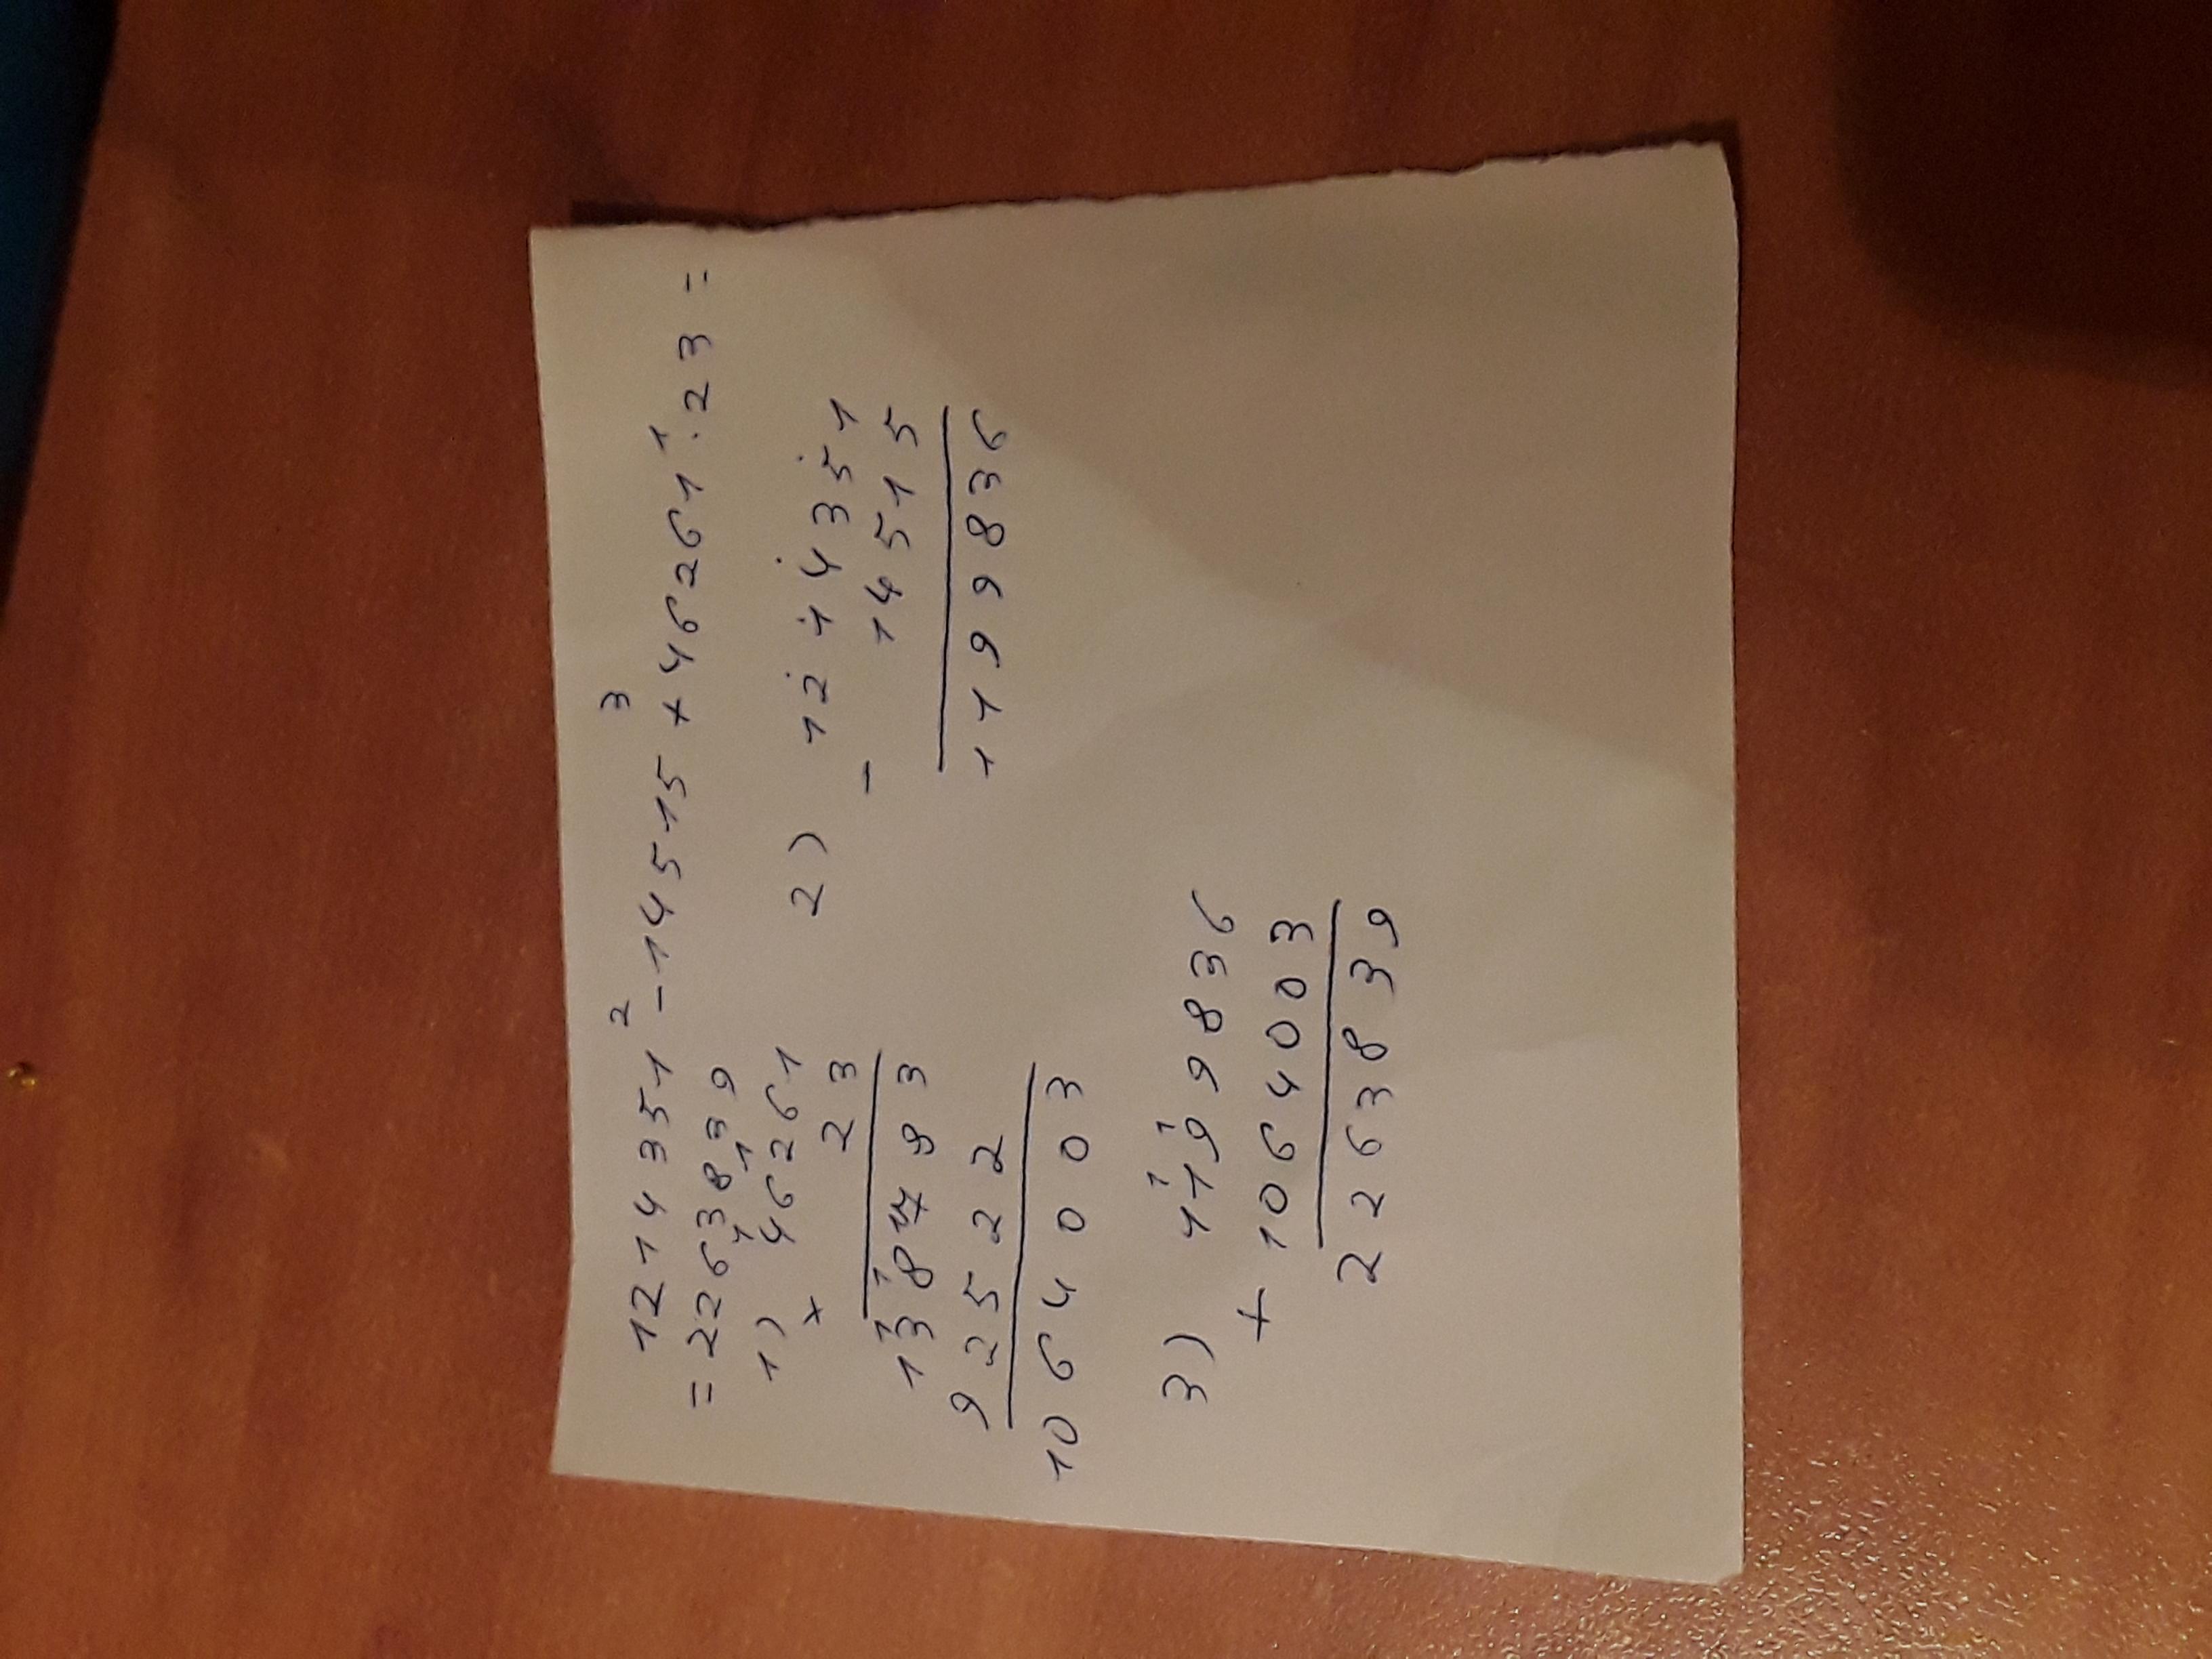 1214351 - 14515 + 46261 . 23 =
= 2263839
1) 46261
x 23
138783
92522
1064003
2) 1214351
- 14515
1199836
3) 1199836
+ 1064003
2263839